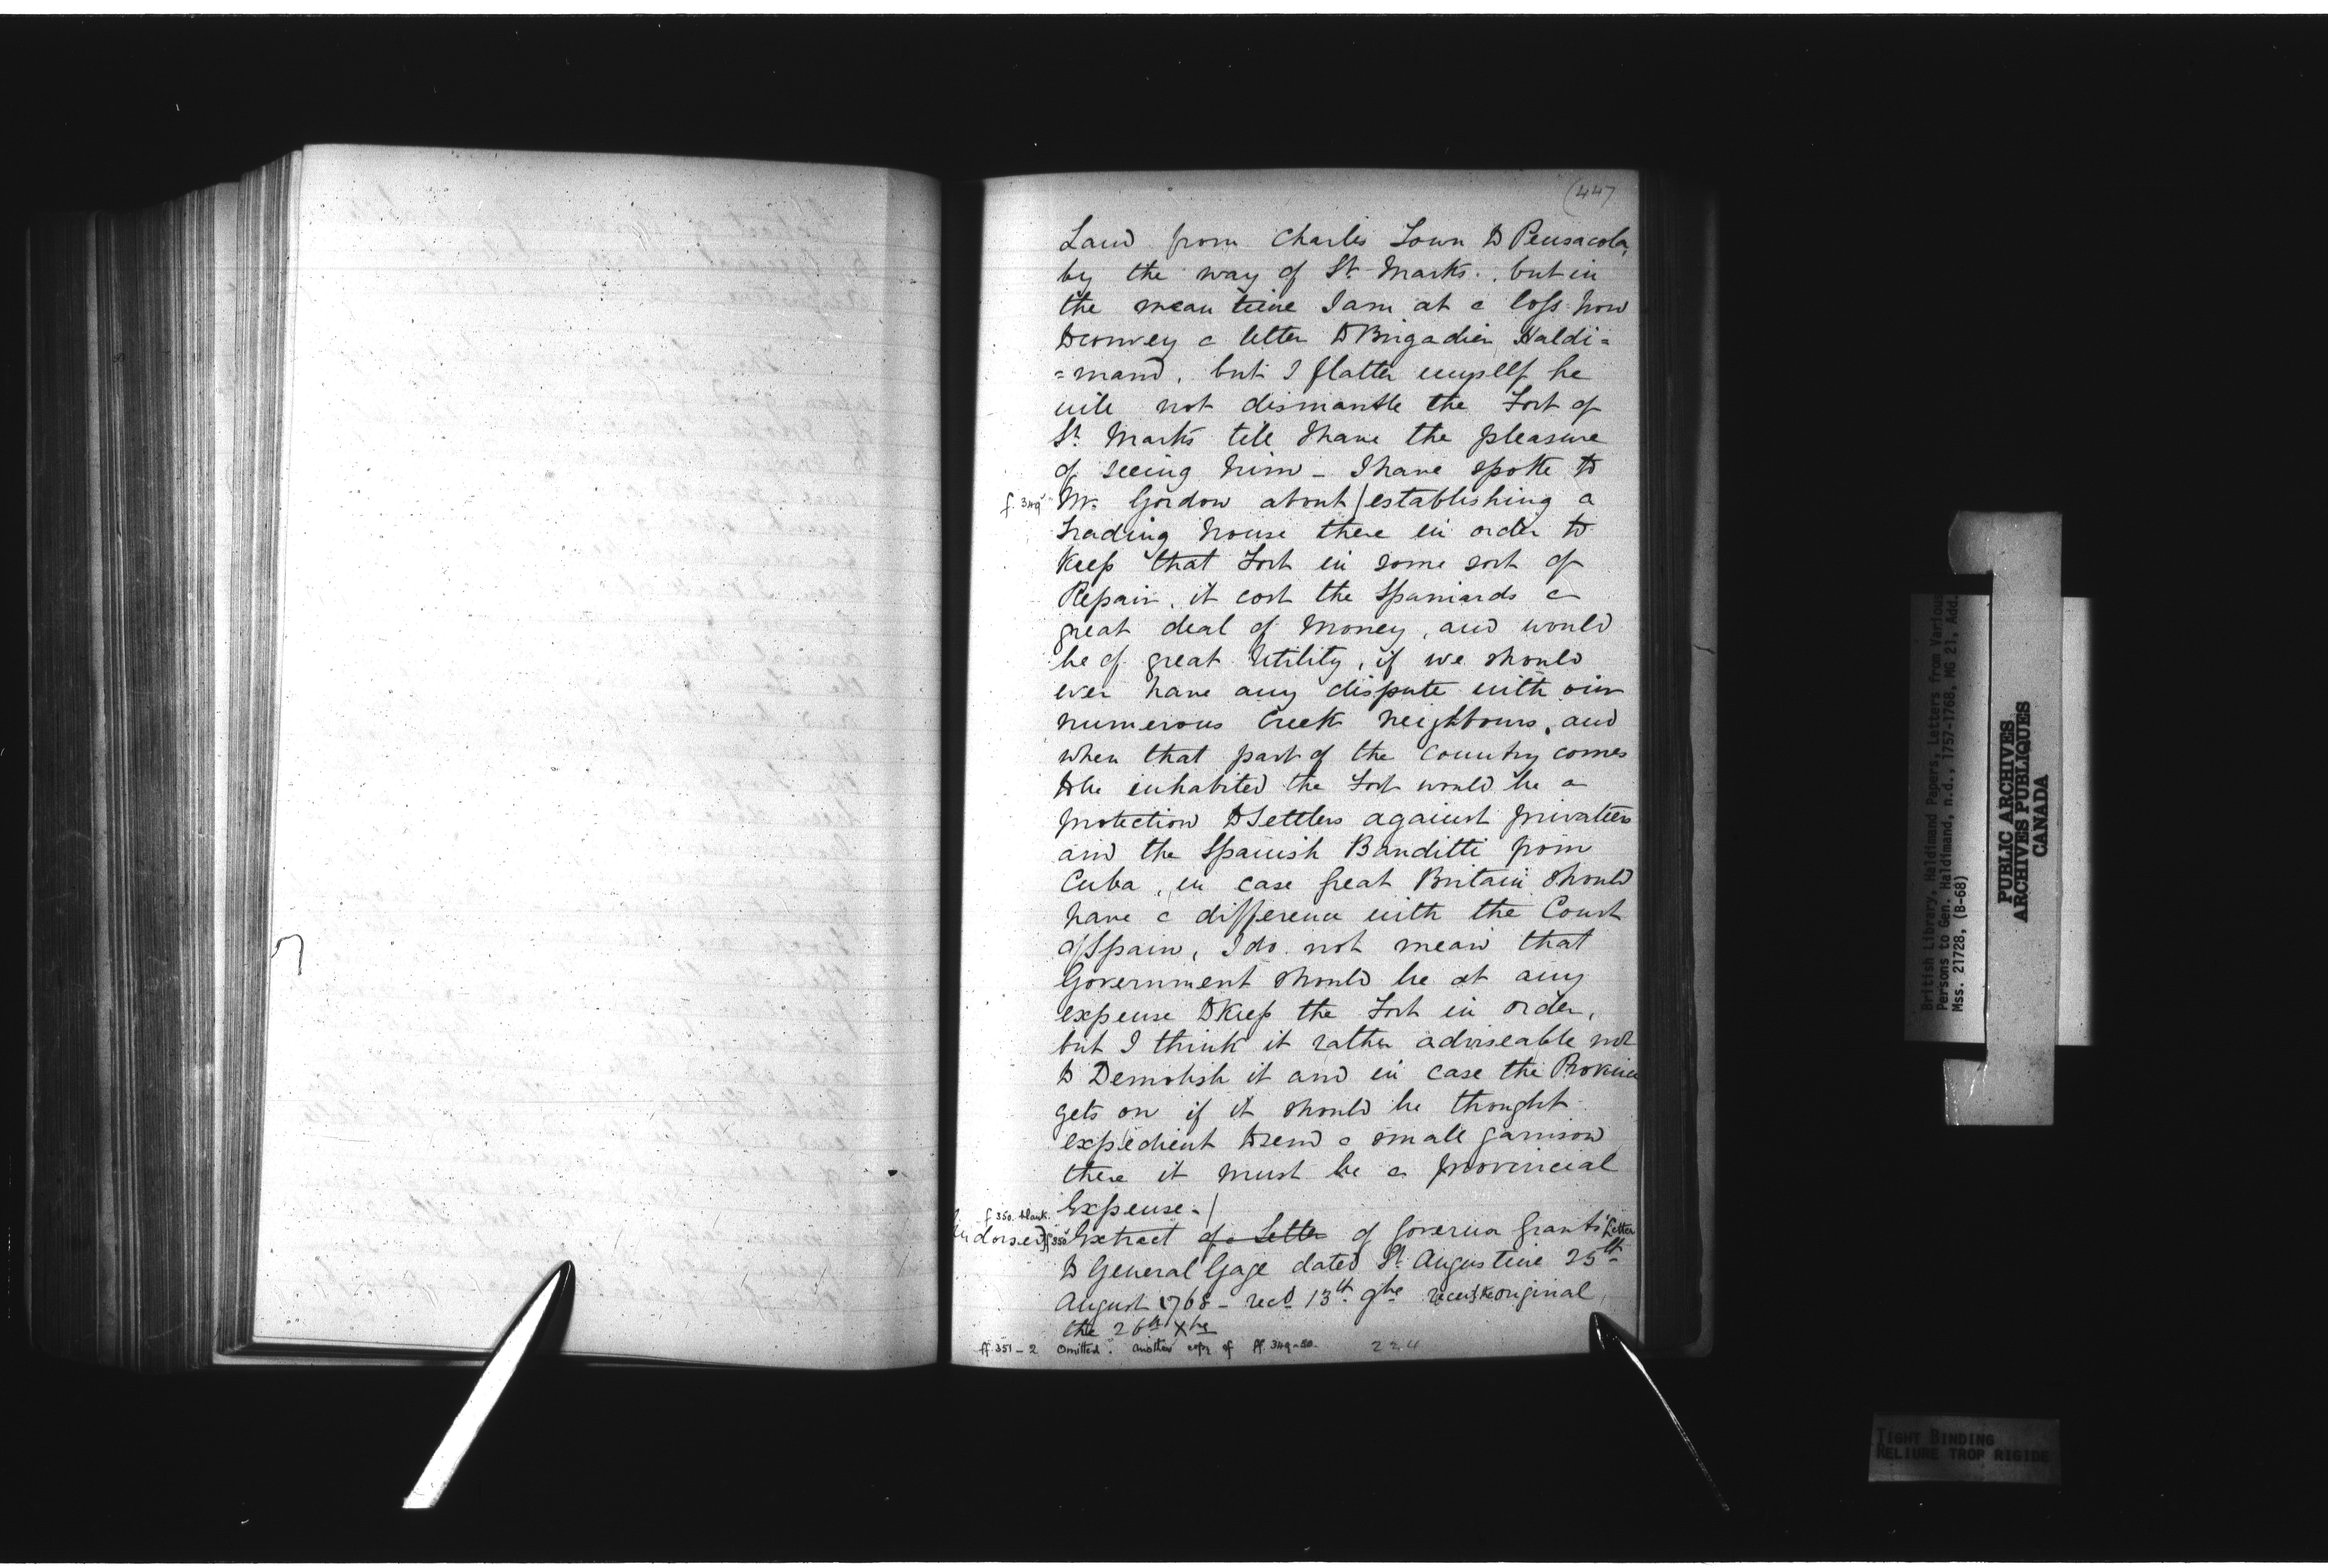 (447
Land from Charles Town to Pensacola,
by the way of St Marks. but in
the mean time I am at a loss how
to convey a letter to Brigadier Haldi=
=mand, but I flatter myself he
will not dismantle the Fort of
St Marks till I have the pleasure
of seeing him – I have spoke to
f. 349v Mr. Gordon about / establishing a
trading house there in order to
Keep that Fort in some sort of
Repair, it cost the Spaniards a
great deal of Money, and would
be of great Utility, if we should
ever have any dispute with our
numerous Creek Neighbours, and
when that part of the Country comes
to be inhabited the Fort would be a
protection to Settlers against privateers
and the Spanish Banditti from
Cuba, in case Great Britain should
have a difference with the Court
of Spain, I do not mean that
Government should be at any
expense to Keep the Fort in order,
but I think it rather adviseable not
to Demolish it and in case the Province
gets on if it should be thought
expedient to send a small garrison
there it must be a provincial
Expense. /
f 350. blank.
Endorsed] f 350v Extract of a Letter of Governor Grant's Letter
to General Gage dated St Augustine 25th
August 1768 – recd 13th 9bre receiv'd the original
the 26th Xbre
ff. 351–2 omitted. another copy of ff. 349–50.
224
British Library, Haldimand Papers, Letters from Various
Persons to Gen. Haldimand, n.d., 1757-1768, MG 21, Add.
Mss. 21728, (B-68)
PUBLIC ARCHIVES
ARCHIVES PUBLIQUES
CANADA
TIGHT BINDING
RELIURE TROP RIGIDE